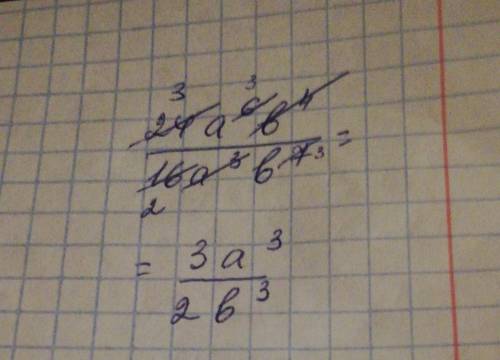 3 3
24 a^6 b^4
16 a^3 b^7 3 =
2
= 3 a^3
2 b^3